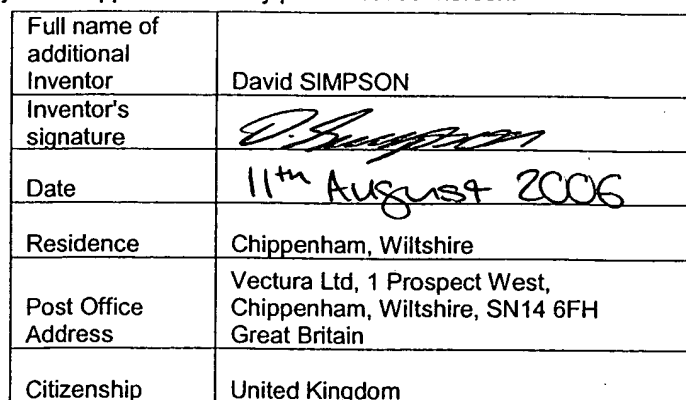 Full name of
additional
Inventor David SIMPSON
Inventor's
signature D. Simpson
Date 11th August 2006
Residence Chippenham, Wiltshire
Post Office
Address
Vectura Ltd, 1 Prospect West,
Chippenham, Wiltshire, SN14 6FH
Great Britain
Citizenship United Kingdom